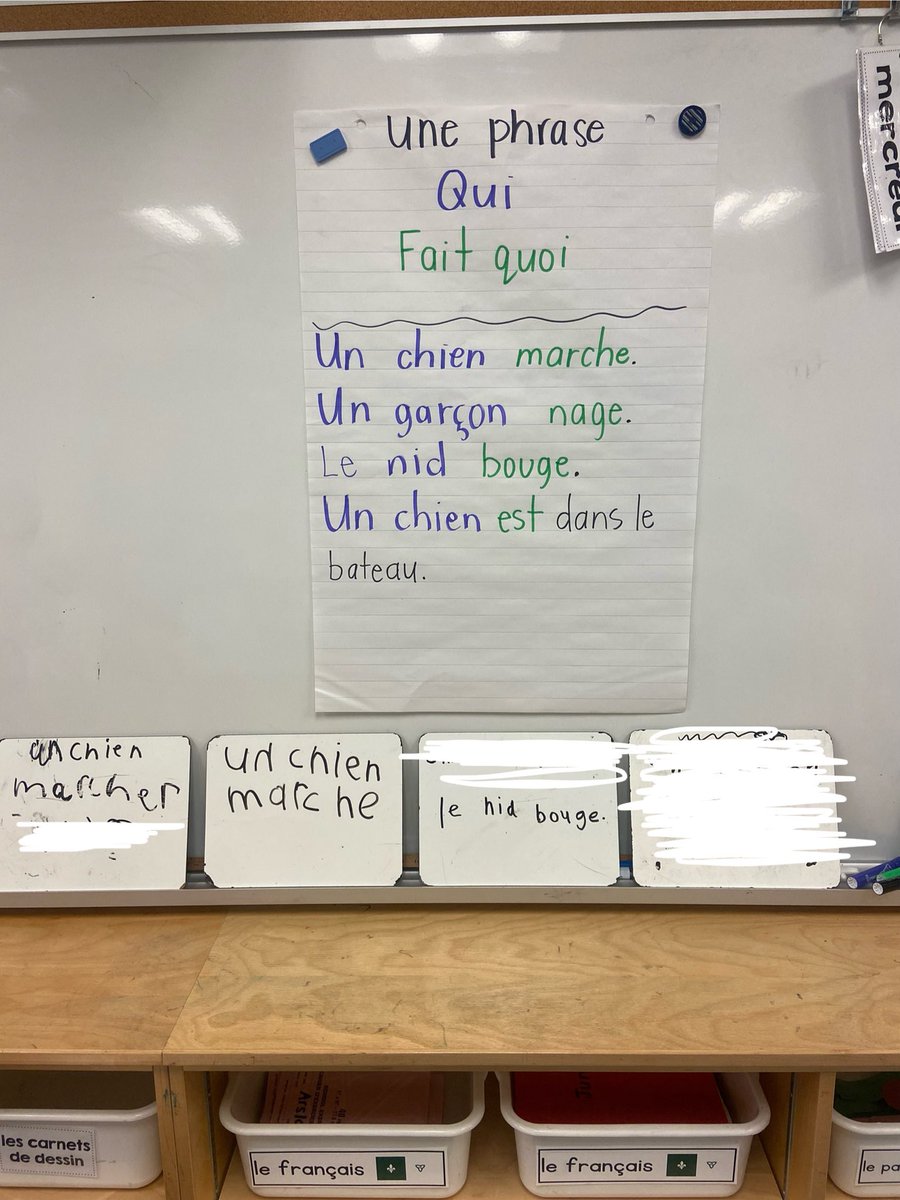 une phrase
Qui
Fait quoi
Un chien marche.
Un garçon nage.
Le nid bouge.
Un chien est dans le
bateau.
un chien
marcher
un chien
marche
le nid bouge.
les carnets
de dessin
le français
le français
le pa